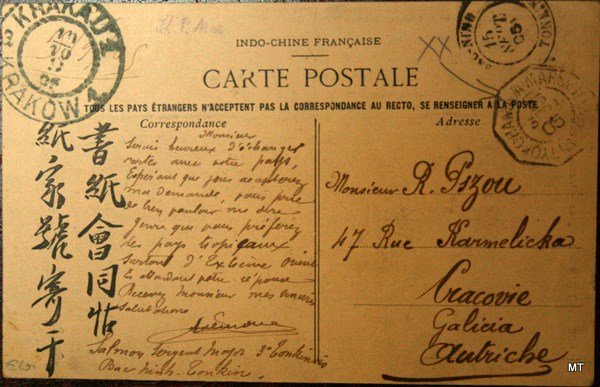 KRAKAU 2
KRAKÓW
INDO-CHINE FRANÇAISE
CARTE POSTALE
TOUS LES PAYS ÉTRANGERS N'ACCEPTENT PAS LA CORRESPONDANCE AU RECTO, SE RENSEIGNER A LA POSTE
Correspondance
Adresse
Monsieur
Serais heureux d'échanger
cartes avec votre pays,
Espérant que vous accepterez
ma demande, vous prie
de bien vouloir me dire
genre que vous préférez
les pays tropicaux
Surtout d'Extrême Orient
En attendant votre réponse
Recevez Monsieur mes
Salutations
Salmon Sergent Major 3e Tonkinois
Bac Ninh. Tonkin.
書紙會同帖
紙家號寄干
Monsieur R. Pszou
47 Rue Karmelicka
Cracovie
Galicia
Autriche
XX
BAC-NINH
15
TONKIN
MT